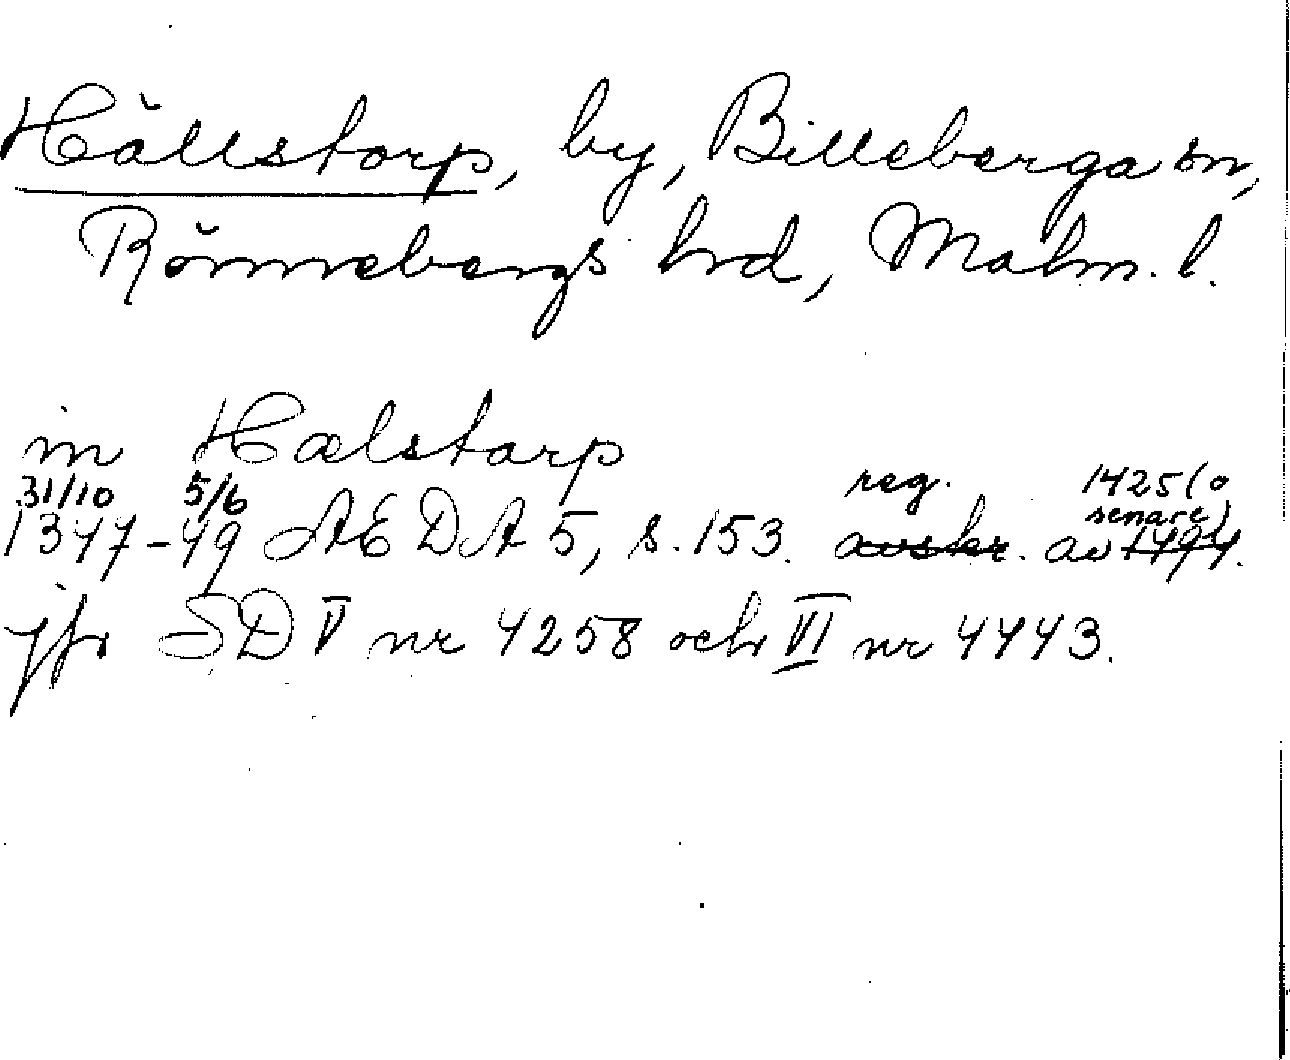 Hällstorp, by, Billeberga sn,
Rönnebergs hrd, Malm. l.
in Hælstorp
31/10 5/6 reg. 1425 (o
senare)
1347-49 AEDA 5, s. 153. avskr. av 1494.
jfr SD V nr 4258 och VI nr 4443.